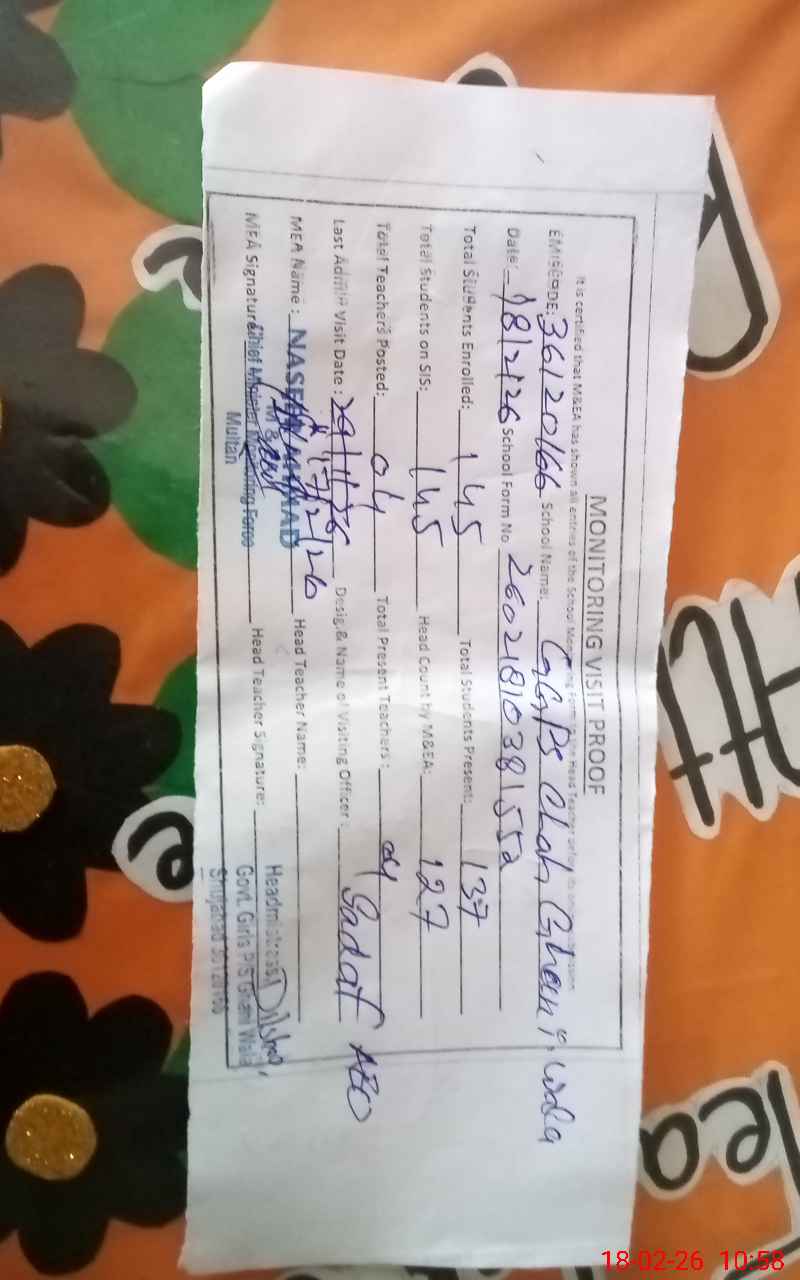 MONITORING VISIT PROOF
It is certified that M&EA has shown all entries of the School Monitoring Form to the Head Teacher before its
EMISCODE: 36120166 School Name: GGPS Chah Ghani wala
Date: 18/2/26 School Form No 26021810381552
Total Students Enrolled: 145 Total Students Present: 137
Total Students on SIS: 145 Head Count by M&EA: 127
Total Teachers Posted: 04 Total Present Teachers: 04
Last Admin Visit Date: 17/2/26 Desig.& Name of Visiting Officer: Sadaf AEO
MEA Name: Head Teacher Name:
MEA Signature: Chief Minister Monitoring Force Head Teacher Signature:
Multan
Headmistress
Govt. Girls P/S Ghani Wala
Shujabad 36120166
18-02-26 10:58